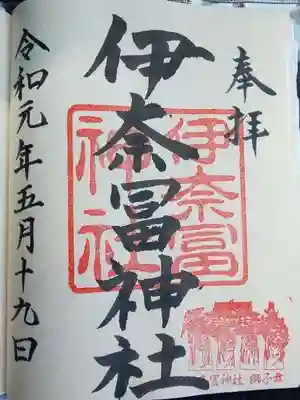 奉拝
伊奈冨神社
伊奈冨
神社
令和元年五月十九日
冨神社 獅子舞